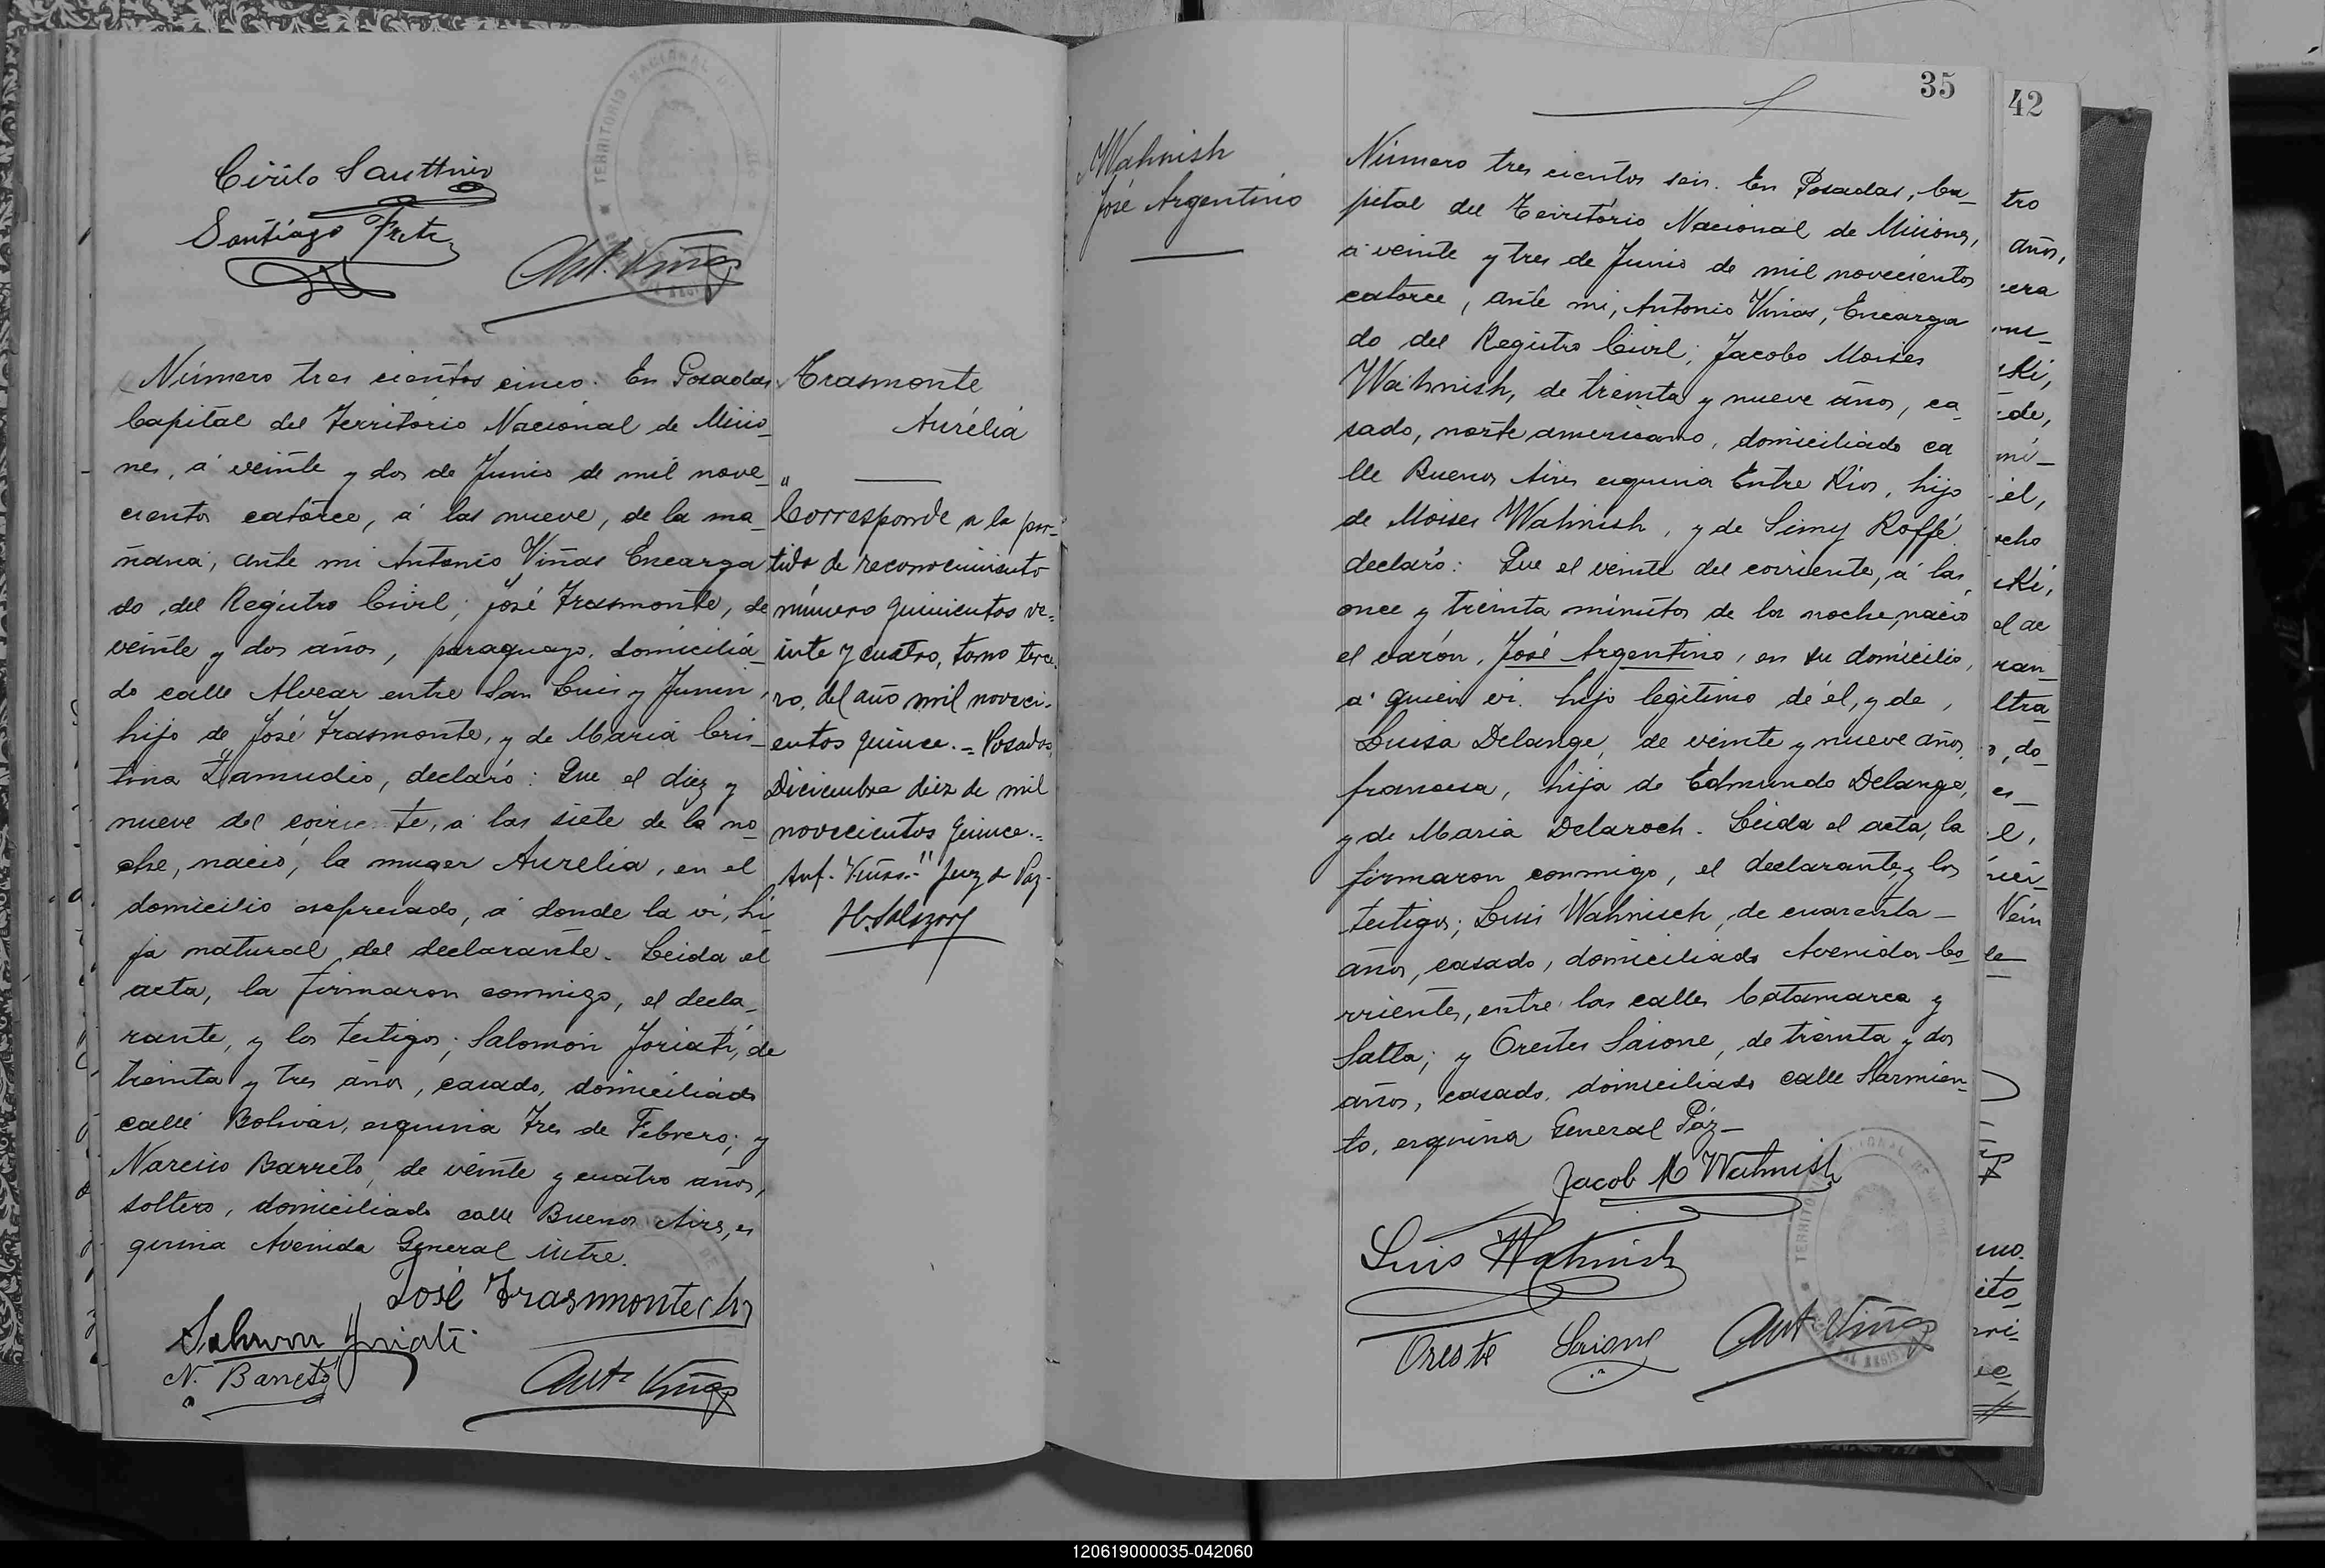 Cirilo Santtnio
Santiago Fretz
Ant. Viñas
TERRITORIO NACIONAL DE
Número tres cientos cinco. En Posadas
Capital del Território Nacional de Misio_
nes, á veinte y dos de Junio de mil nove_
cientos catorce, á las nueve, de la ma_
ñana, ante mi Antonio Viñas Encarga
do del Registro Civil; José Trasmonte, de
veinte y dos años, paraguayo, domicilia_
do calle Alvear entre San Luis y Junin,
hijo de José Trasmonte, y de Maria Cris_
tina Zamudio, declaró: Que el diez y
nueve del corriente, á las siete de la no_
che, nació, la muger Aurelia, en el
domicilio espresado, á donde la vi, hi
ja natural del declarante. Leida el
acta, la firmaron conmigo, el decla_
rante, y los testigos; Salomón Joriati, de
treinta y tres años, casado, domiciliado
calle Bolivar, esquina Tres de Febrero; y
Narciso Barreto, de veinte y cuatro años,
soltero, domiciliado calle Buenos Aires, es
quina Avenida General Mitre.
José Trasmonte (h)
N. Barreto
Ant. Viñas
Trasmonte
Aurélia
"Corresponde a la par-
tida de reconocimiento
número quinientos ve-
inte y cuatro, tomo terce-
ro, del año mil noveci-
entos quince.= Posadas,
Diciembre diez de mil
novecientos quince.=
Ant. Viñas." Juez de Paz.
35
42
Wahnish
José Argentino
Número tres cientos seis. En Posadas, Ca_
pital del Território Nacional de Misiones,
á veinte y tres de Junio de mil novecientos
catorce, ante mi, Antonio Viñas, Encarga
do del Registro Civil; Jacobo Moises
Wahnish, de treinta y nueve años, ca_
sado, norte americano, domiciliado ca
lle Buenos Aires esquina Entre Rios, hijo
de Moises Wahnish, y de Simy Roffé
declaró: Que el veinte del corriente, á las
once y treinta minutos de la noche, nació
el varón, José Argentino, en su domicilio,
á quien vi. hijo legitimo de él, y de,
Luisa Delange, de veinte y nueve años,
francesa, hija de Edmundo Delange,
y de Maria Delaroch. Leida el acta, la
firmaron conmigo, el declarante, y los
testigos; Luis Wahnisch, de cuarenta_
años, casado, domiciliado Avenida Co_
rrientes, entre las calles Catamarca y
Salta; y Orestes Saione, de treinta y dos
años, casado, domiciliado calle Sarmien_
to, esquina General Páz_
Jacob M Wahnish
Luis Wahnish
Oreste Saione
Ant. Viñas
tro
años,
era
ski,
de,
mi_
él,
ocho
ski,
ran_
ltra_
do_
120619000035-042060